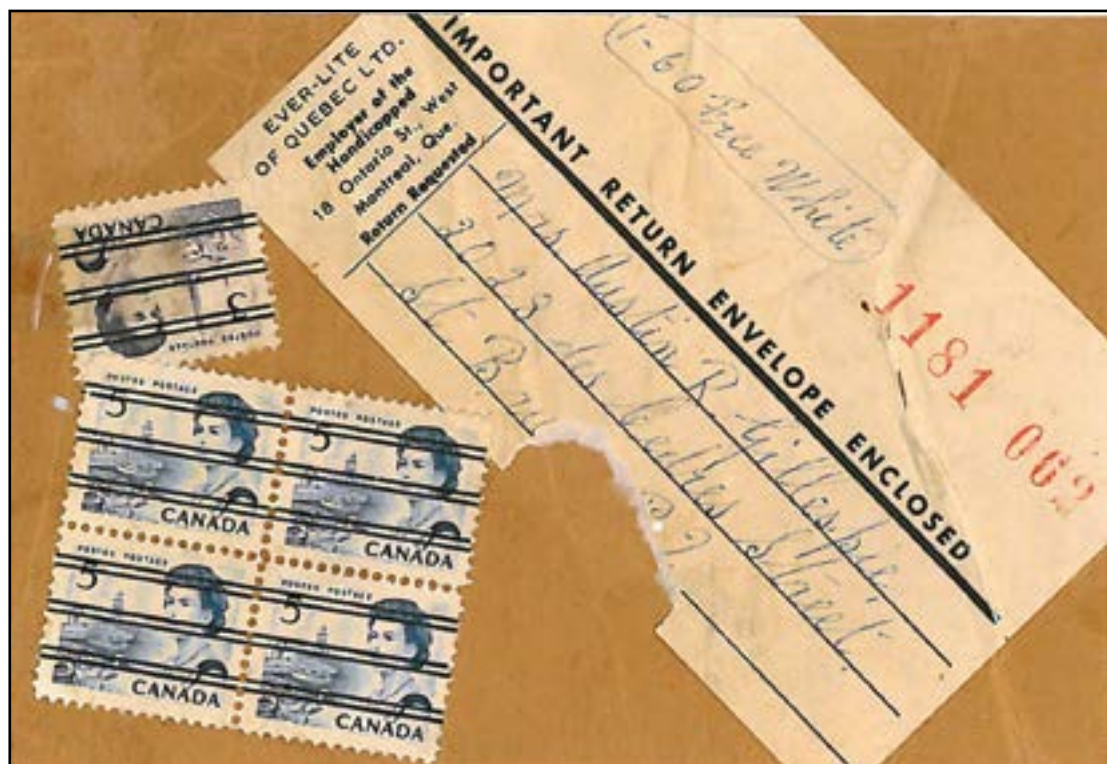 EVER-LITE
OF QUEBEC LTD.
Employer of the
Handicapped
18 Ontario St., West
Montreal, Que.
Return Requested
IMPORTANT RETURN ENVELOPE ENCLOSED
60 Free White
1181 062
Mrs Austin R. Gillespie
3023 des Street
St. Bru
CANADA
3
POSTES POSTAGE
POSTES POSTAGE
5
CANADA
POSTES POSTAGE
5
CANADA
POSTES POSTAGE
5
CANADA
POSTES POSTAGE
5
CANADA